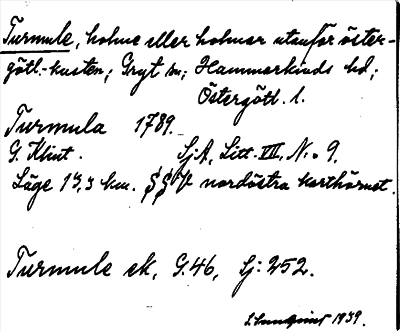 Turmule, holme eller holmar utanför öster-
götl.-kusten; Gryt sn; Hammarkinds hd;
Östergötl. l.
Turmula 1789.
G. Klint. SjA, Litt. VII, No 9.
Läge 13,3 km. nordöstra karthörnet.
Turmule sk, G.46, Sj: 252.
1939.